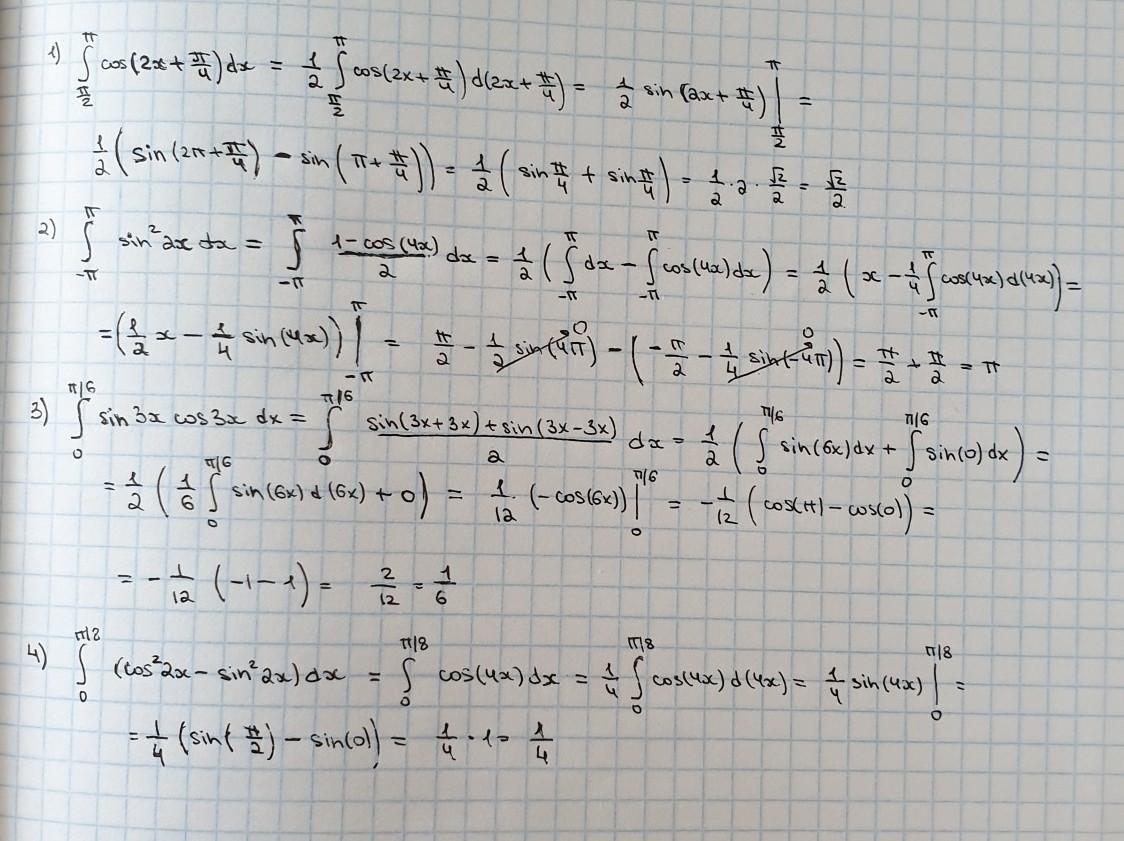 1) ∫_{π/2}^{π} cos(2x + π/4) dx = 1/2 ∫_{π/2}^{π} cos(2x + π/4) d(2x + π/4) = 1/2 sin(2x + π/4) |_{π/2}^{π} =
1/2 (sin(2π + π/4) - sin(π + π/4)) = 1/2 (sin π/4 + sin π/4) = 1/2 · 2 · √2/2 = √2/2
2) ∫_{-π}^{π} sin² 2x dx = ∫_{-π}^{π} (1 - cos(4x))/2 dx = 1/2 (∫_{-π}^{π} dx - ∫_{-π}^{π} cos(4x) dx) = 1/2 (x - 1/4 ∫_{-π}^{π} cos(4x) d(4x)) =
= (1/2 x - 1/4 sin(4x)) |_{-π}^{π} = π/2 - 1/2 sin(4π)→0 - (-π/2 - 1/4 sin(-4π)→0) = π/2 + π/2 = π
3) ∫_{0}^{π/6} sin 3x cos 3x dx = ∫_{0}^{π/6} (sin(3x + 3x) + sin(3x - 3x))/2 dx = 1/2 (∫_{0}^{π/6} sin(6x) dx + ∫_{0}^{π/6} sin(0) dx) =
= 1/2 (1/6 ∫_{0}^{π/6} sin(6x) d(6x) + 0) = 1/12 · (-cos(6x)) |_{0}^{π/6} = -1/12 (cos(π) - cos(0)) =
= -1/12 (-1 - 1) = 2/12 = 1/6
4) ∫_{0}^{π/8} (cos² 2x - sin² 2x) dx = ∫_{0}^{π/8} cos(4x) dx = 1/4 ∫_{0}^{π/8} cos(4x) d(4x) = 1/4 sin(4x) |_{0}^{π/8} =
= 1/4 (sin(π/2) - sin(0)) = 1/4 · 1 = 1/4